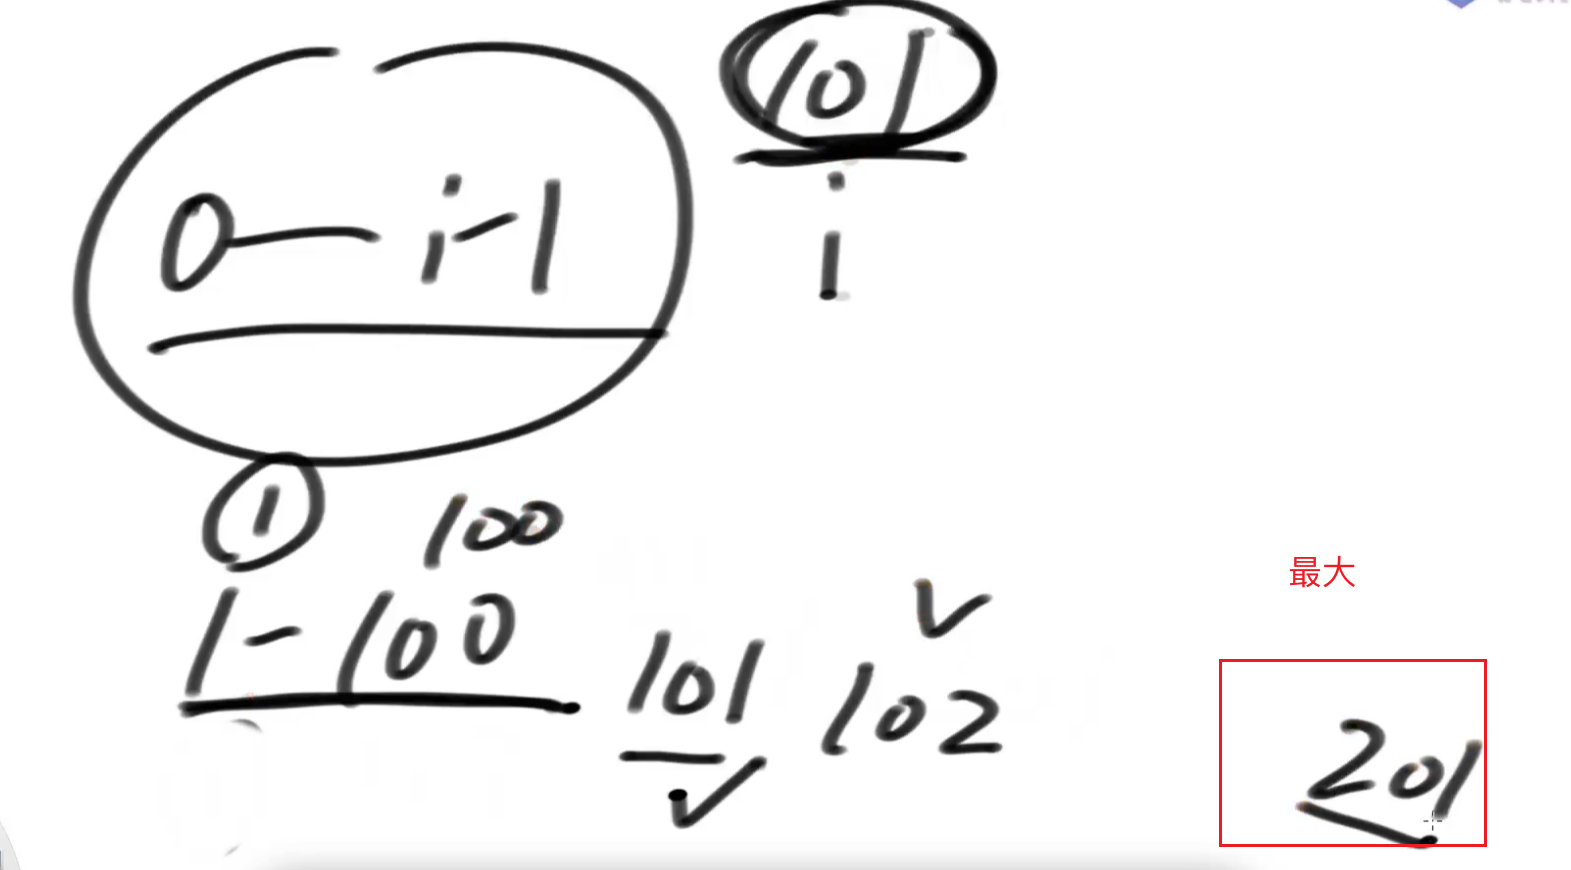 101
0—i-1
i
① 100
1-100
101 102
最大
201